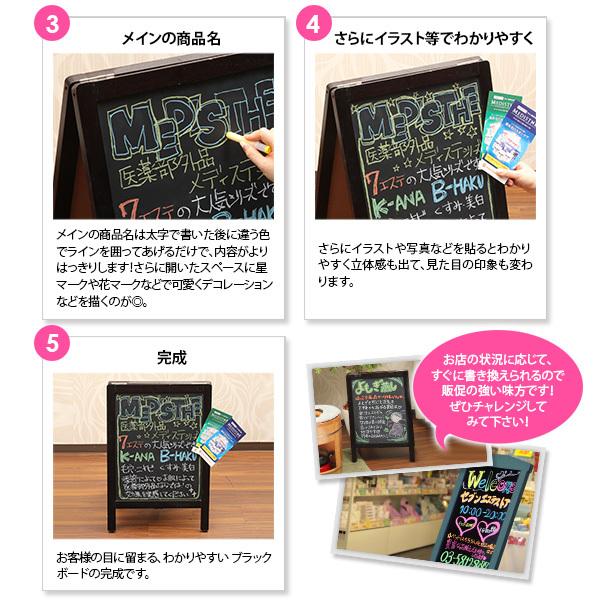 3
メインの商品名
MEDISTHE
医薬部外品
メディステシリーズ
7エステの大人気シリーズです
K-ANA B-HAKU
メインの商品名は太字で書いた後に違う色
でラインを囲ってあげるだけで、内容がより
はっきりします!さらに開いたスペースに星
マークや花マークなどで可愛くデコレーション
などを描くのが◎。
4
さらにイラスト等でわかりやすく
医薬部外品
7エステの大人気シリーズです
K-ANA B-HAKU
くすみ・美白
さらにイラストや写真などを貼るとわかり
やすく立体感も出て、見た目の印象も変わ
ります。
5
完成
7エステの大人気シリーズです
K-ANA B-HAKU
くすみ・美白
お客様の目に留まる、わかりやすい ブラック
ボードの完成です。
お店の状況に応じて、
すぐに書き換えられるので
販促の強い味方です!
ぜひチャレンジして
みて下さい!
よもぎ蒸し
Welcome
セブンエステティア
10:00~20:00